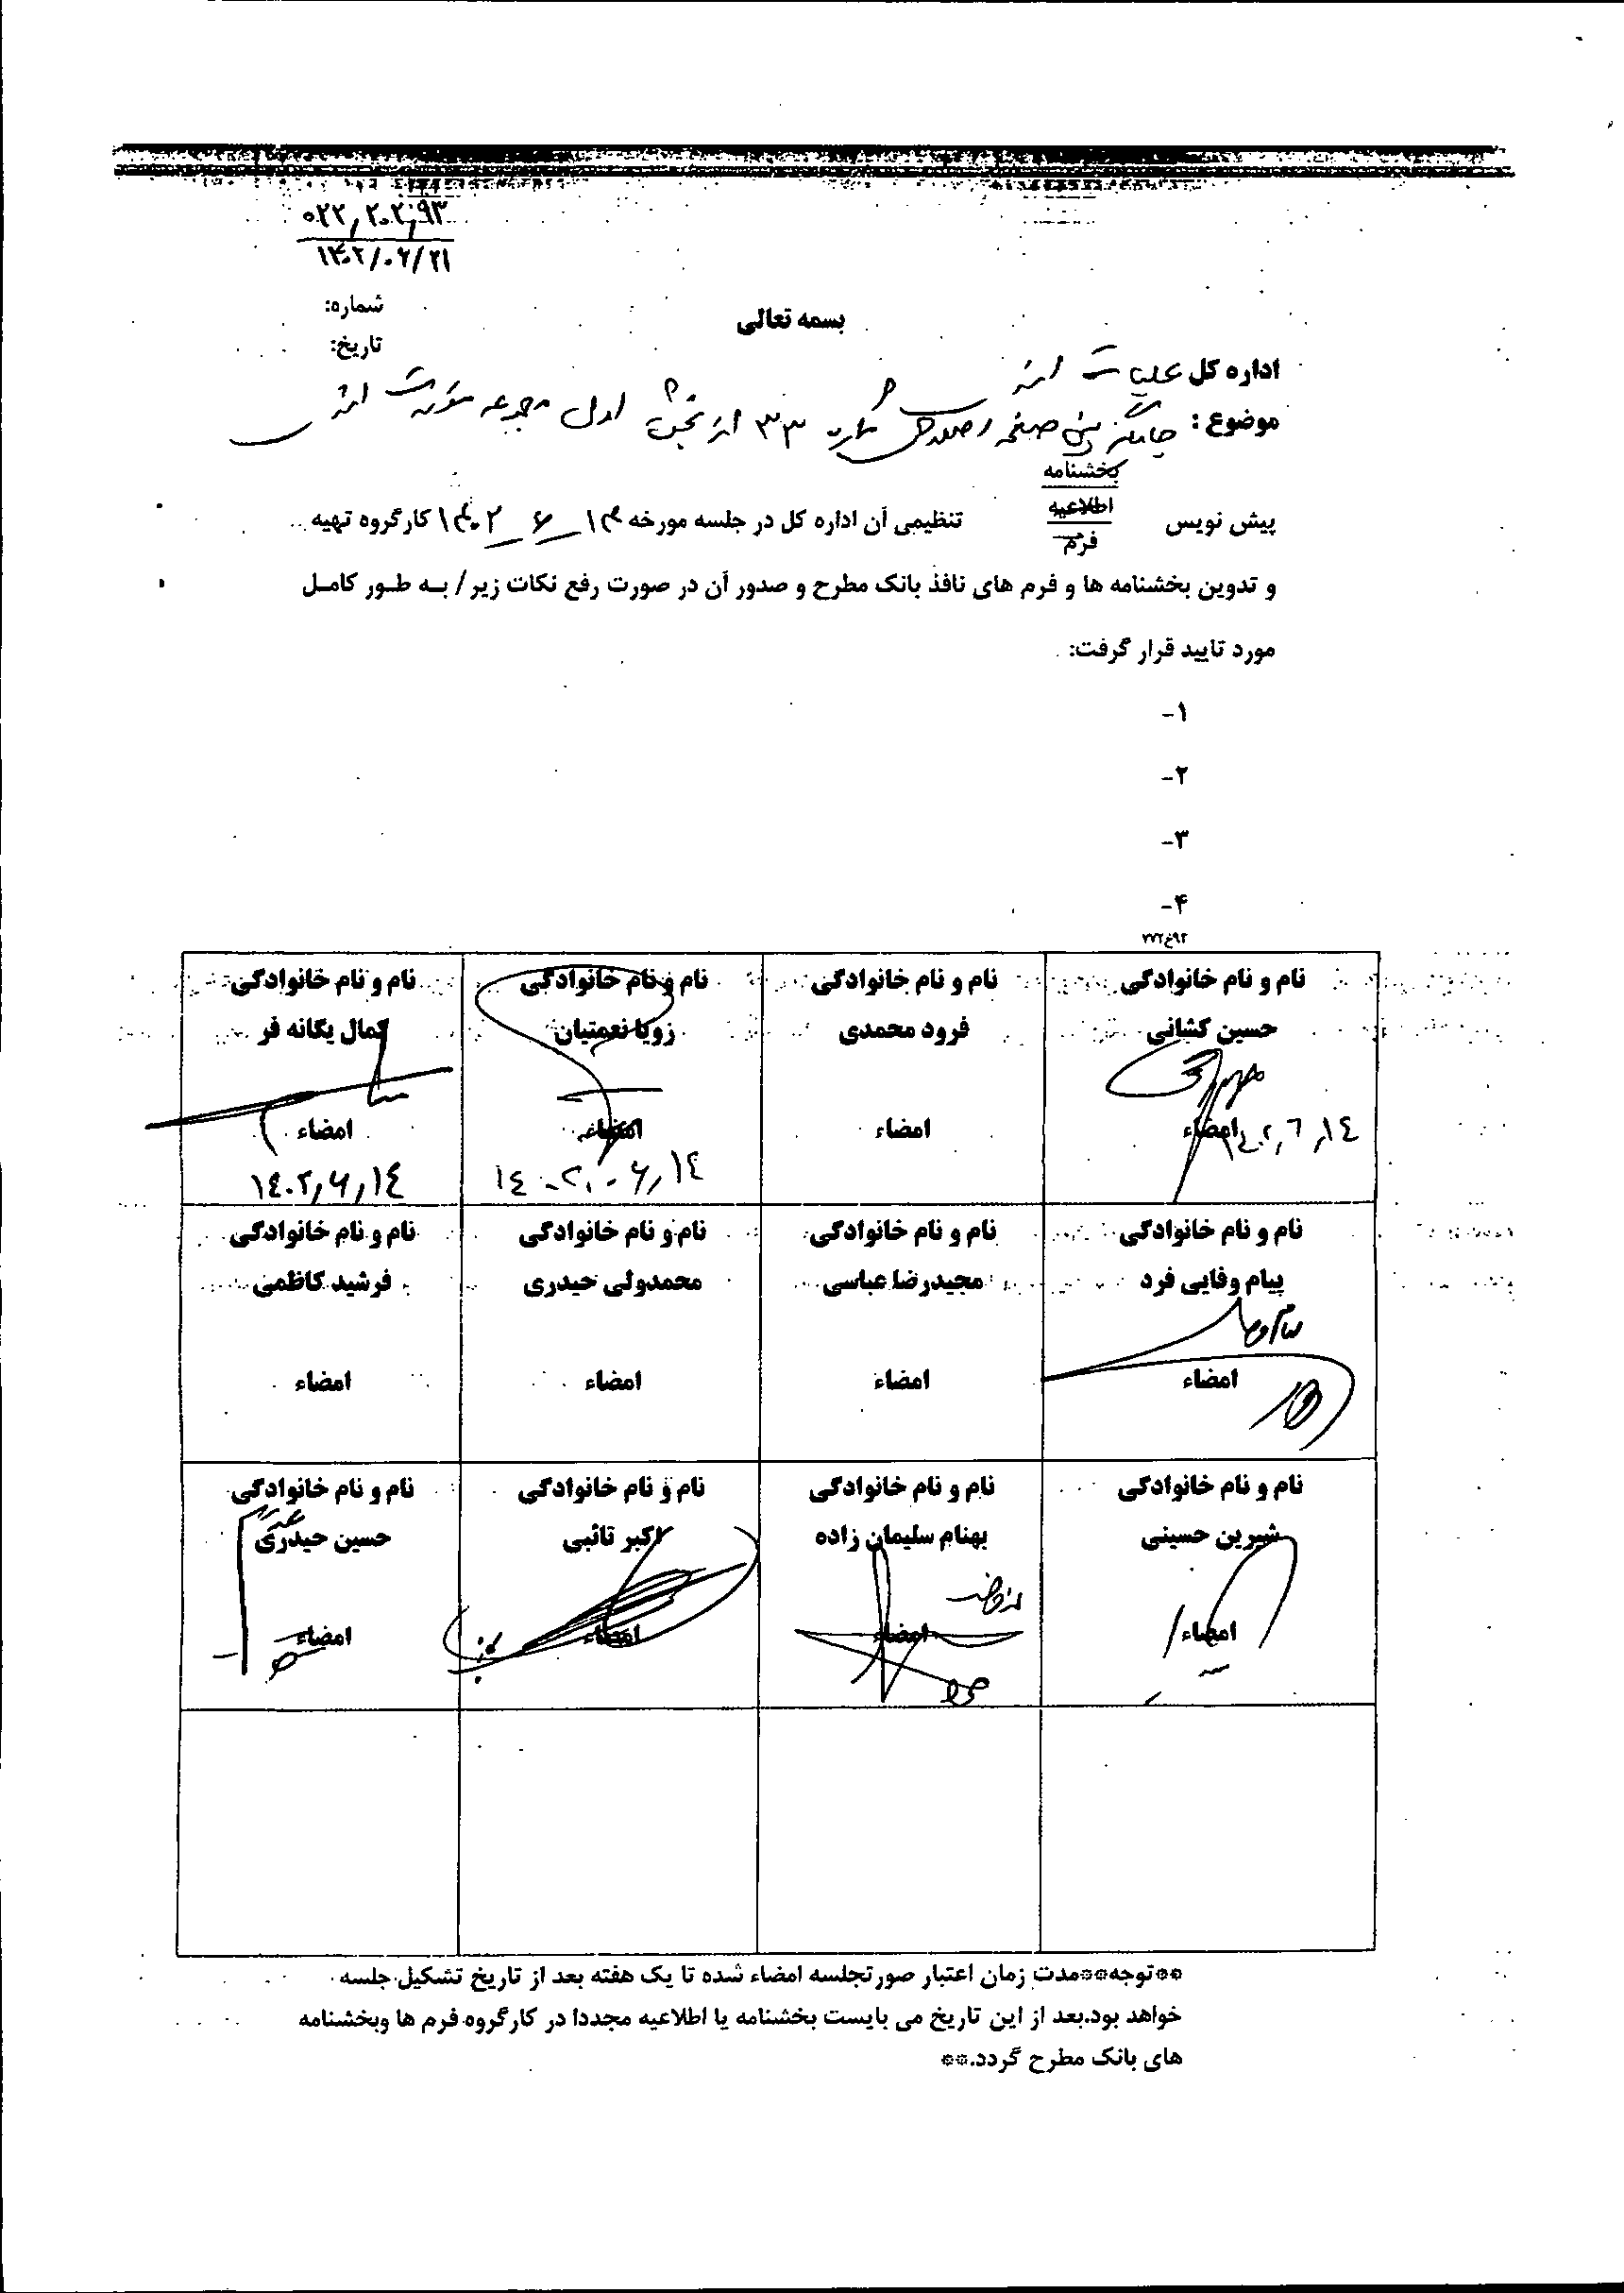 ۰۲۲/۲۰۲/۹۳
۱۴۰۲/۰۶/۲۱
شماره:
تاریخ:
بسمه تعالی
اداره کل عملیات ارزی
موضوع: جایگزینی صفحه اصلاحی شماره ۳۳ از بخش اول مجموعه مقررات ارزی
بخشنامه
اطلاعیه
فرم
پیش نویس تنظیمی آن اداره کل در جلسه مورخه ۱۴۰۲_۶_۱۴ کارگروه تهیه
و تدوین بخشنامه ها و فرم های نافذ بانک مطرح و صدور آن در صورت رفع نکات زیر/ به طور کامل
مورد تایید قرار گرفت:
۱-
۲-
۳-
۴-
نام و نام خانوادگی نام و نام خانوادگی نام و نام خانوادگی نام و نام خانوادگی
حسین کشانی فرود محمدی زویا نعمتیان کمال یگانه فر
امضاء امضاء امضاء امضاء
۱۴۰۲,۶,۱۴ ۱۴۰۲,۰۶,۱۴ ۱۴۰۲,۶,۱۴
نام و نام خانوادگی نام و نام خانوادگی نام و نام خانوادگی نام و نام خانوادگی
پیام وفایی فرد مجیدرضا عباسی محمدولی حیدری فرشید کاظمی
امضاء امضاء امضاء امضاء
نام و نام خانوادگی نام و نام خانوادگی نام و نام خانوادگی نام و نام خانوادگی
شیرین حسینی بهنام سلیمان زاده اکبر تائبی حسین حیدری
امضاء امضاء امضاء امضاء
**توجه**مدت زمان اعتبار صورتجلسه امضاء شده تا یک هفته بعد از تاریخ تشکیل جلسه
خواهد بود.بعد از این تاریخ می بایست بخشنامه یا اطلاعیه مجددا در کارگروه فرم ها وبخشنامه
های بانک مطرح گردد.**